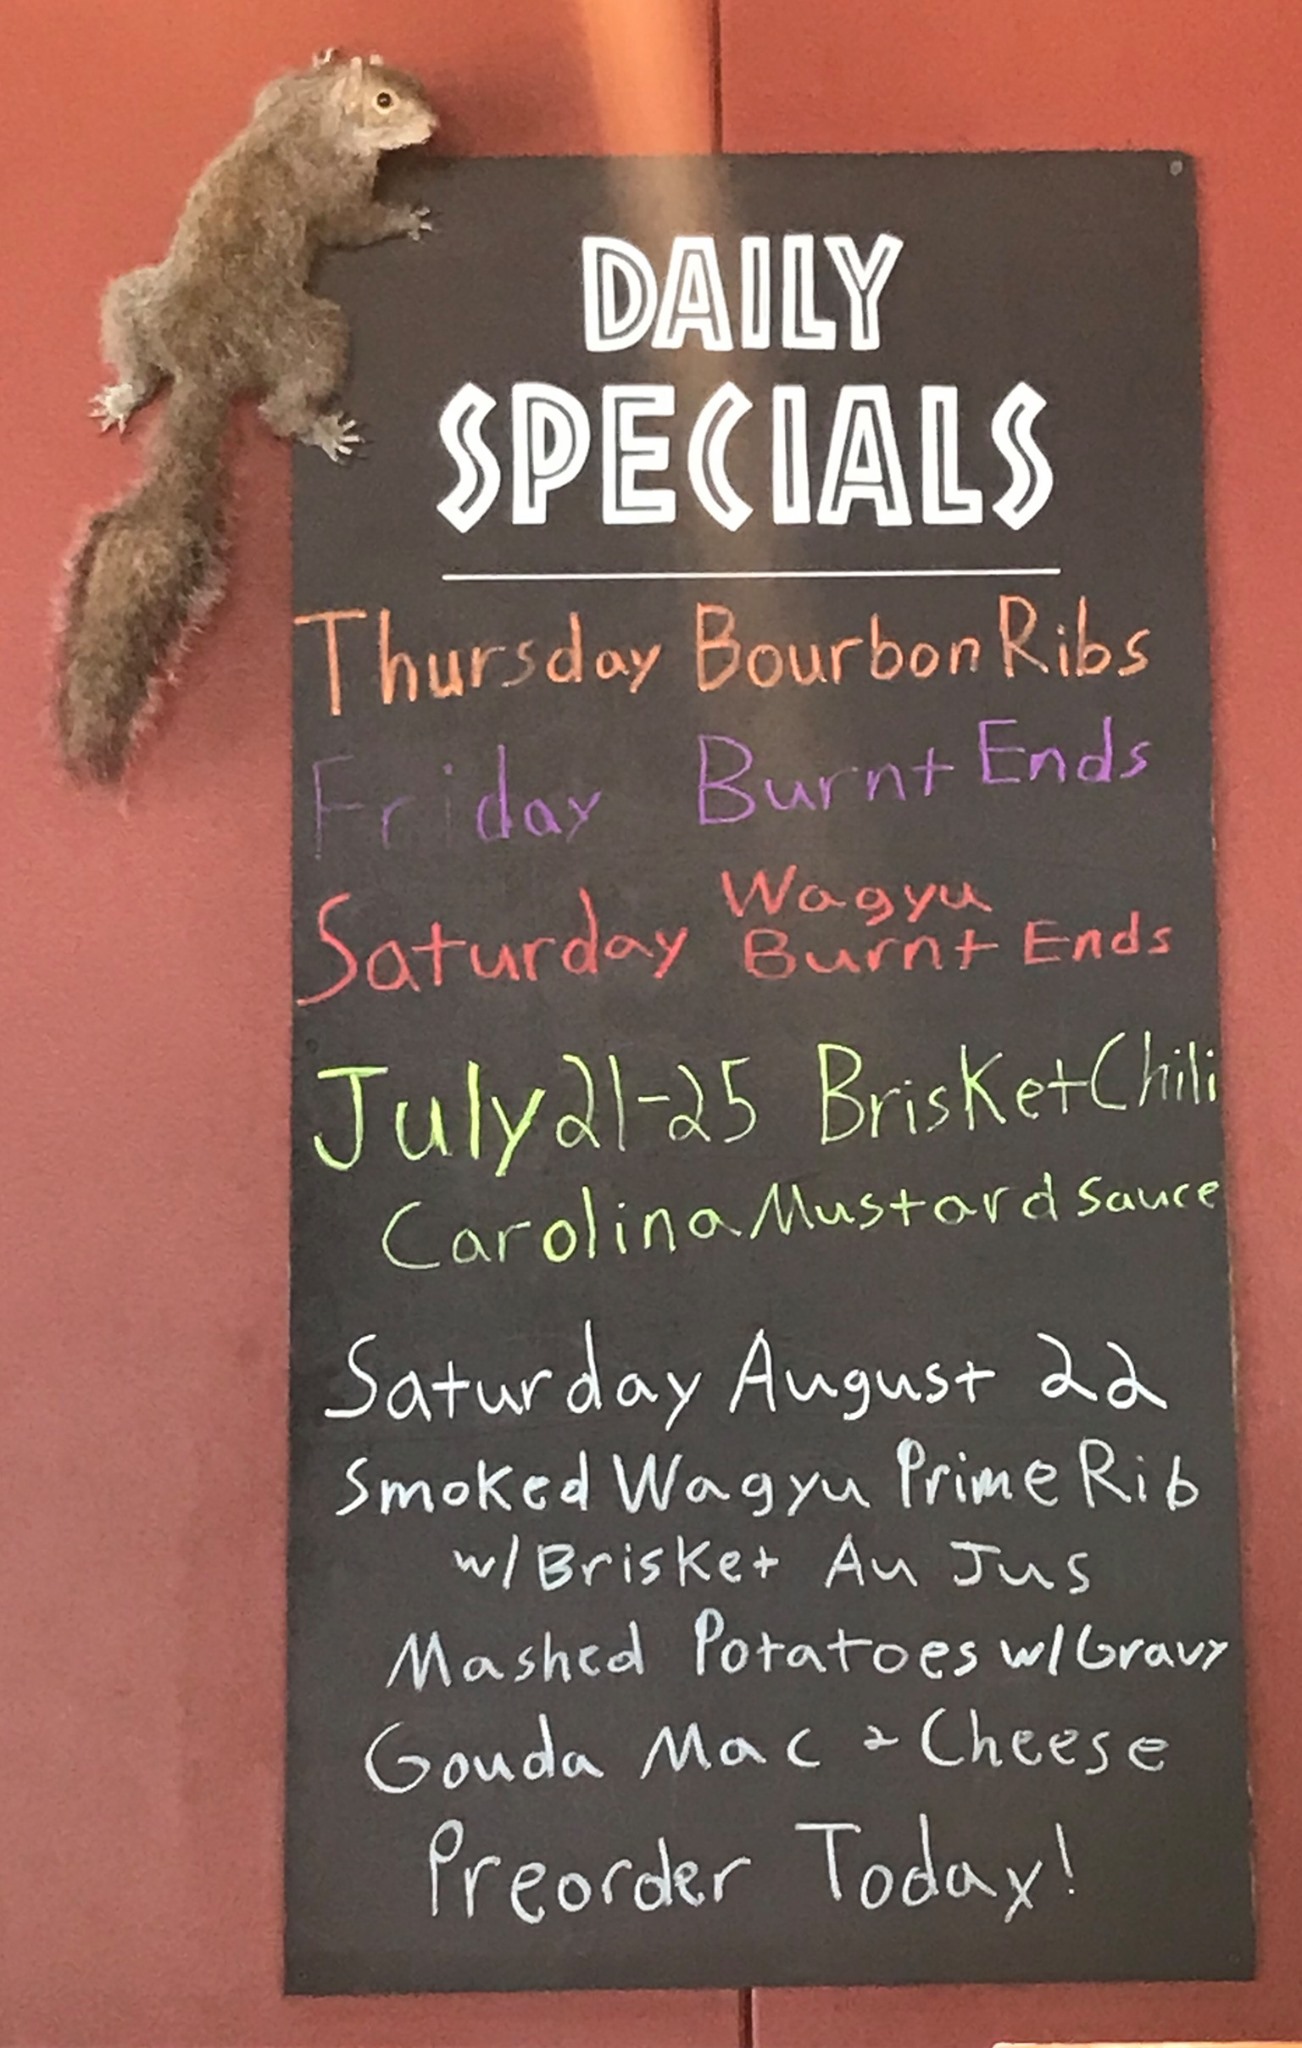 DAILY
SPECIALS
Thursday Bourbon Ribs
Friday Burnt Ends
Saturday Wagyu
Burnt Ends
July 21-25 Brisket Chili
Carolina Mustard Sauce
Saturday August 22
Smoked Wagyu Prime Rib
w/ Brisket Au Jus
Mashed Potatoes w/ Gravy
Gouda Mac & Cheese
Preorder Today!